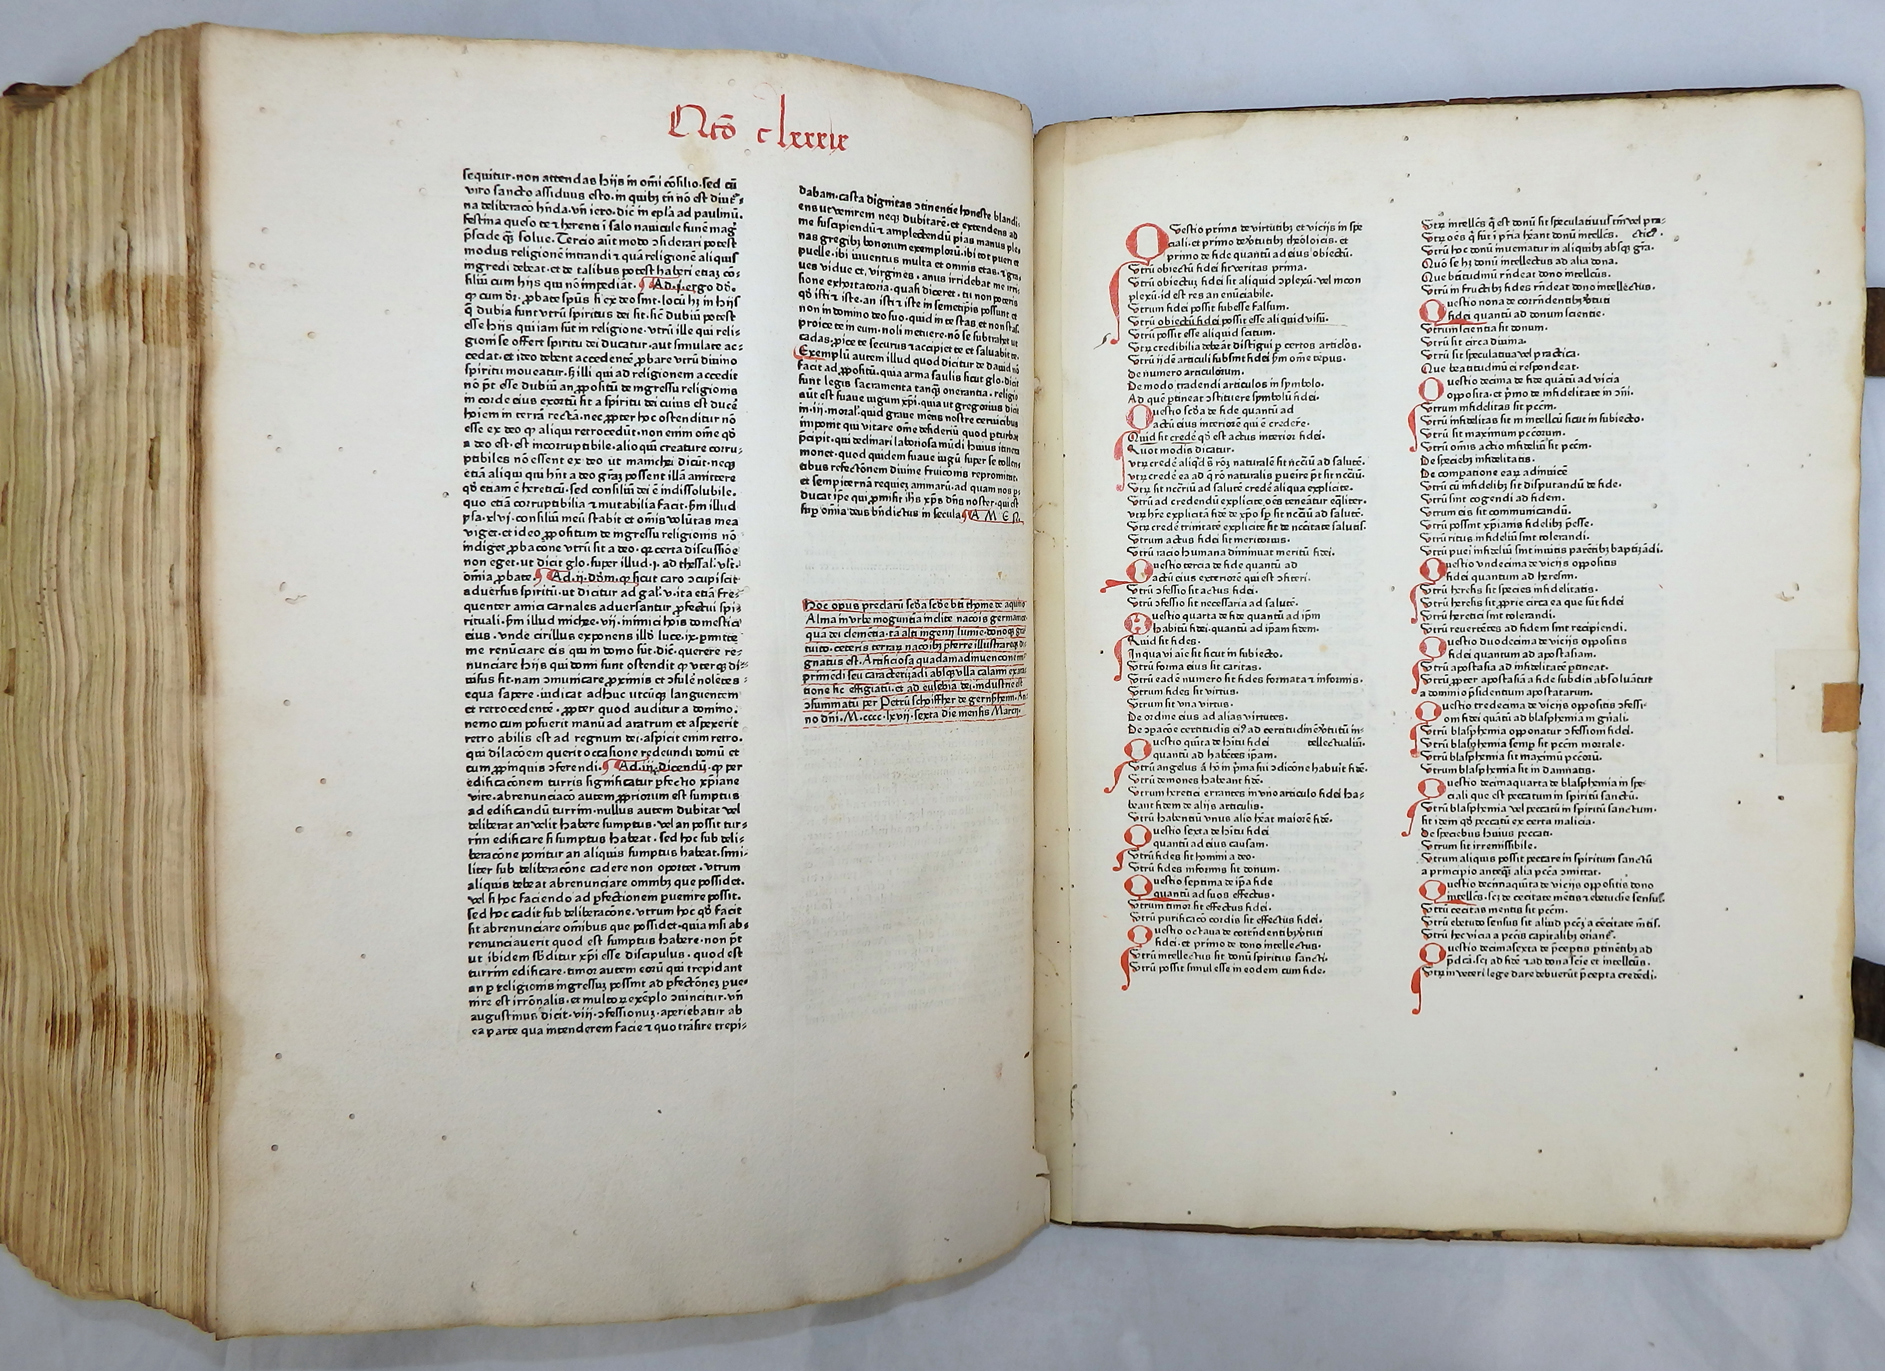 Qctō clxxxix
sequitur·non attendas hijs in om̄i cōsilio·sed cū
viro sancto assiduus esto·in quibꝫ tn̄ nō est diuti-
na deliberacō hn̄da·vn̄ iero·dic̄ in epl̄a ad paulinū·
festina queso te ⁊ herenti ī salo nauicule funē maḡ
p̄scide qꝫ solue·Tercio aūt modo ↄsiderari potest
modus religionē intrandi ⁊ quā religionē aliquis
ingredi debeat·et de talibus potest haberi etiaꝫ cō-
siliū cum hijs qui nō impediāt·¶Ad·i·ergo dō·
ꝙ cum dr̄·ꝓbate spūs si ex deo sint·locū hꝫ in hijs
q̄ dubia sunt vtrū spiritus dei sit·sic̄ dubiū potest
esse hijs qui iam sūt in religione·vtrū ille qui reli-
gioni se offert spiritu dei ducatur·aut simulate ac-
cedat·et ideo debent accedentē ꝓbare vtrū diuino
spiritu moueatur·Sꝫ illi qui ad religionem accedit
nō pōt esse dubiū an ꝓpositū de ingressu religionis
in corde eius exortū sit a spiritu dei cuius est ducē
hoiem in terrā rectā·nec ꝓpter hoc ostenditur nō
esse ex deo ꝙ aliqui retrocedūt·non enim om̄e qd̄
a deo est·est incorruptibile·alioqui creature corru-
ptibiles nō essent ex deo ut manichei dicūt·neqꝫ
etiā aliqui qui hn̄t a deo gr̄aꝫ possent illā amittere
qd̄ etiam ē hereticū·sed consiliū dei ē indissolubile·
quo etiā corruptibilia ⁊ mutabilia facit·ẜm illud
ysa·xlvi·consiliū meū stabit et om̄is volūtas mea
viget·et ideo ꝓpositum de ingressu religionis nō
indiget ꝓbacōne vtrū sit a deo·qꝛ certa discussiōe
non eget·ut dicit glo·super illud·i·ad thessal·vlt·
om̄ia ꝓbate·¶Ad·ii·dōm·ꝙ sicut caro ↄcupiscit
aduersus spiritū·ut dicitur ad gal·v·ita etiā fre-
quenter amici carnales aduersantur ꝓfectui spi-
rituali·ẜm illud michee·vii·inimici hoīs domestici
eius·vnde cirillus exponens illd̄ luce·ix·ꝑmitte
me renūciare eis qui in domo sūt·dic̄·querere re-
nunciare hijs qui domi sunt ostendit ꝙ vtcqꝫ di-
uisus sit·nam ↄmunicare ꝓximis et ↄsule nolētes
equa sapere·iudicat adhuc utcūqꝫ languentem
et retrocedentē·ꝓpter quod auditur a domino·
nemo cum posuerit manū ad aratrum et aspexerit
retro abilis est ad regnum dei·aspicit enim retro·
qui dilacōem querit occasione redeundi domū et
cum ꝓpinquis ↄferendi·¶Ad·iii·dicendū·ꝙ per
edificacōnem turris significatur ꝑfectio xp̄iane
vite·abrenunciacō autem ꝓpriorum est sumptus
ad edificandū turrim·nullus autem dubitat vel
deliberat an velit habere sumptus·vel an possit tur-
rim edificare si sumptus habeat·sed hoc sub deli-
beracōne ponitur an aliquis sumptus habeat·simi-
liter sub deliberacōne cadere non oportet·vtrum
aliquis debeat abrenunciare omnibꝫ que possidet·
vel si hoc faciendo ad ꝑfectionem ꝑuenire possit·
sed hoc cadit sub deliberacōne·vtrum hoc qd̄ facit
sit abrenunciare omnibus que possidet·quia nisi ab-
renunciauerit quod est sumptus habere·non pōt
ut ibidem subditur xp̄i esse discipulus·quod est
turrim edificare·timor autem eorū qui trepidant
an ꝑ religionis ingressuꝫ possint ad ꝑfectōneꝫ ꝑue-
nire est irrōnalis·et multoꝝ exēplo ↄuincitur·vn̄
augustinus dicit·viii·ↄfessionuꝫ·aperiebatur ab
ea parte qua intenderem facie ⁊ quo trāsire trepi-
dabam·casta dignitas ↄtinentie honeste blandi-
ens ut venirem neqꝫ dubitarē·et extendens ad
me suscipiendū ⁊ amplectendū pias manus ple-
nas gregibꝫ bonorum exemploꝝ·ibi tot pueri et
puelle·ibi iuuentus multa et omnis etas·⁊ gra-
ues vidue et virgines·anus irridebat me irri-
sione exhortatoria·quasi diceret·tu non poteris
qd̄ isti ⁊ iste·an isti ⁊ iste in semetipsis possunt et
non in domino deo suo·quid in te stas·et non stas·
proice te in eum·noli metuere·nō se subtrahet ut
cadas·ꝓice te securus ⁊ accipiet te et saluabit te·
Exemplū autem illud quod dicitur de dauid nō
facit ad ꝓpositū·quia arma saulis sicut glo·dicit
sunt legis sacramenta tanqꝫ onerantia·religio
aūt est suaue iugum xp̄i·quia ut gregorius dicit
in·iiii·moral·quid graue mētis nostre ceruicibus
imponit qui vitare om̄e desideriū quod ꝑturbat
p̄cipit·qui declinari laboriosa mūdi huius itinera
monet·quod quidem suaue iugū super se tollenti-
tibus refectōnem diuine fruicōnis repromittit·
et sempiternā requieꝫ animarū·ad quam nos ꝑ-
ducat ip̄e qui ꝓmisit ih̄s xp̄s dn̄s noster·qui est
suꝑ om̄ia deus bn̄dictus in secula·¶A M E N
Hoc opus preclarū scd̄a scd̄e bt̄i thome de aquino
Alma in vrbe moguntia inclite nacōis germanice·
qua dei clemētia·tā alti ingenij lumie·donoqꝫ gra-
tuito·ceteris terraꝝ nacoibꝫ p̄ferre illustrareqꝫ di-
gnatus est·Artificiosa quadam adinuencone im-
primēdi seu caracterizādi absqꝫ vlla calami exara-
tione sic effigiatū·et ad eusebiā dei·industrie est
ↄsummatū per Petrū schoiffher de gernshem·An-
no dn̄i·M·cccc·lxvii·sexta die mensis Marcij·
Questio prima de virtutibꝫ et vicijs in spe
ciali·et primo de v̓tutibꝫ theoloicis·et
primo de fide quantū ad eius obiectū·
Vtrū obiectū fidei sit veritas prima·
Vtrū obiectuꝫ fidei sit aliquid ↄplexū·vel incon
plexū·id est res an enūciabile·
Vtrum fidei possit subesse falsum·
Vtrū obiectū fidei possit esse aliquid visū·
Vtrū possit esse aliquid scitum·
Vtrꝫ credibilia debeāt distigui ꝑ certos articlōs·
Vtrū ijdē articuli subsint fidei ẜm om̄e tēpus·
De numero articulorum·
De modo tradendi articulos in symbolo·
Ad quē ꝑtineat ↄstituere symbolū fidei·
Questio scd̄a de fide quantū ad
actū eius interiorē qui ē credere·
Quid sit credē qd̄ est actus interior fidei·
Quot modis dicatur·
Vtrꝫ credē aliqd̄ sꝫ rōꝫ naturalē sit nccīū ad salutē·
Vtrꝫ credē ea ad q̄ rō naturalis ꝑueīre pōt sit nccīū·
Vtrꝫ sit nccr̄iū ad salutē credē aliqua explicite·
Vtrū ad credendū explicite oēs teneātur eq̄liter·
Vtrꝫ hr̄e explicitā fidē de xp̄o sp̄ sit nccīū ad salutē·
Vtrꝫ credē trinitatē explicite sit de nccītate salutis·
Vtrum actus fidei sit meritorius·
Vtrū racio humana diminuat meritū fidei·
Questio tercia de fide quantū ad
actū eius exteriorē qui est ↄfiteri·
Vtrū ↄfessio sit actus fidei·
Vtrū ↄfessio sit necessaria ad salutē·
Questio quarta de fide quantū ad ip̄m
habitū fidei·quantū ad ip̄am fidem·
Quid sit fides·
In qua vi aīe sit sicut in subiecto·
Vtrū forma eius sit caritas·
Vtrū eadē numero sit fides formata ⁊ informis·
Vtrum fides sit virtus·
Vtrum sit vna virtus·
De ordine eius ad alias virtutes·
De ↄpacōe certitudis ei⁹ ad certitudinē v̓tutū in-
Questio qūita de hītu fidei tellectualiū·
quantū ad habētes ip̄am·
Vtrū angelus ā hō in p̄ma sui ↄdicōne habuit fidē·
Vtrū demones habeant fidē·
Vtrum heretici errantes in vno articulo fidei ha-
beant fidem de alijs articulis·
Vtrū habentiū vnus alio hēat maiorē fidē·
Questio sexta de hītu fidei
quantū ad eius causam·
Vtrū fides sit homini a deo·
Vtrū fides informis sit donum·
Questio septima de ip̄a fide
quantū ad suos effectus·
Vtrum timor sit effectus fidei·
Vtrū purificacō cordis sit effectus fidei·
Questio octaua de corrn̄dentibꝫ v̓tuti
fidei·et primo de dono intellectus·
Vtrū intellectus sit donū spiritus sancti·
Vtrū possit simul esse in eodem cum fide·
Vtrꝫ intellcs̄ q̄ est donū sit speculatiuus tm̄ vel pra-
Vtrꝫ oēs q̄ sūt ī gr̄ia hēant donū intellcs̄· ctic⁹·
Vtrū hoc donū inueniatur in aliquibꝫ absqꝫ gr̄a·
Quō se hꝫ donū intellectus ad alia dona·
Que bt̄itudinū rn̄deat dono intellcūs·
Vtrū in fructibꝫ fides rn̄deat dono intellectus·
Questio nona de corrn̄dentibꝫ v̓tuti
fidei quantū ad donum scientie·
Vtrum scientia sit donum·
Vtrū sit circa diuina·
Vtrū sit speculatiua vel practica·
Que beatitudinū ei respondeat·
Questio decima de fide quātū ad vicia
opposita·et p̄mo de infidelitate in ↄm̄i·
Vtrum infidelitas sit pccm̄·
Vtrū infidelitas sit in intellcū sicut in subiecto·
Vtrū sit maximum pccōrum·
Vtrū om̄is actio infideliū sit pccm̄·
De speciebꝫ infidelitatis·
De comparatione eaꝝ adinuicē
Vtrū cū infidelibꝫ sit disputandū de fide·
Vtrū sint cogendi ad fidem·
Vtrum cis sit communicandū·
Vtrū possint xp̄ianis fidelibꝫ p̄esse·
Vtrū ritus infideliū sint tolerandi·
Vtrū pueri infideliū sint inuitis parētibꝫ baptizādi·
Questio vndecima de vicijs oppositis
fidei quantum ad heresim·
Vtrū heresis sit species infidelitatis·
Vtrū heresis sit ꝓprie circa ea que sūt fidei
Vtrū heretici sint tolerandi·
Vtrū reuertētes ad fidem sint recipiendi·
Questio duodecima de vicijs oppositis
fidei quantum ad apostasiam·
Vtrū apostasia ad infidelitatē ꝑtineat·
Vtrū ꝓpter apostasiā a fide subditi absoluātur
a dominio p̄sidentium apostatarum·
Questio tredecima de vicijs oppositis ↄfessi-
oni fidei quātū ad blasphemiā in gn̄ali·
Vtrū blasphemia opponatur ↄfessioni fidei·
Vtrū blasphemia semꝑ sit pccm̄ mortale·
Vtrū blasphemia sit maximū pccōrū·
Vtrum blasphemia sit in damnatis·
Questio decimaquarta de blasphemia in spe-
ciali que est peccatum in spiritū sanctū·
Vtrū blasphemia vel peccatū in spiritū sanctum·
sit idem qd̄ peccatū ex certa malicia·
De speciebus huius peccati·
Vtrum sit irremissibile·
Vtrum aliquis possit peccare in spiritum sanctū
a principio anteqꝫ alia pccā ↄmittat·
Questio decimaqūita de vicijs oppositis dono
intellcs̄·sci·de cecitate mētis ⁊ ebetudie sensus·
Vtrū cecitas mentis sit pccm̄·
Vtrū ebetudo sensus sit aliud pccꝫ a cecitate mētis·
Vtrū hec vicia a pccīs carnalibꝫ oriant̄·
Questio decimasexta de p̄ceptis ꝑtinētibꝫ ad
p̄dcā·sci·ad fidē ⁊ ad dona scīe et intellcūs·
Vtrꝫ in veteri lege dare debuerūt p̄cepta credēdi·